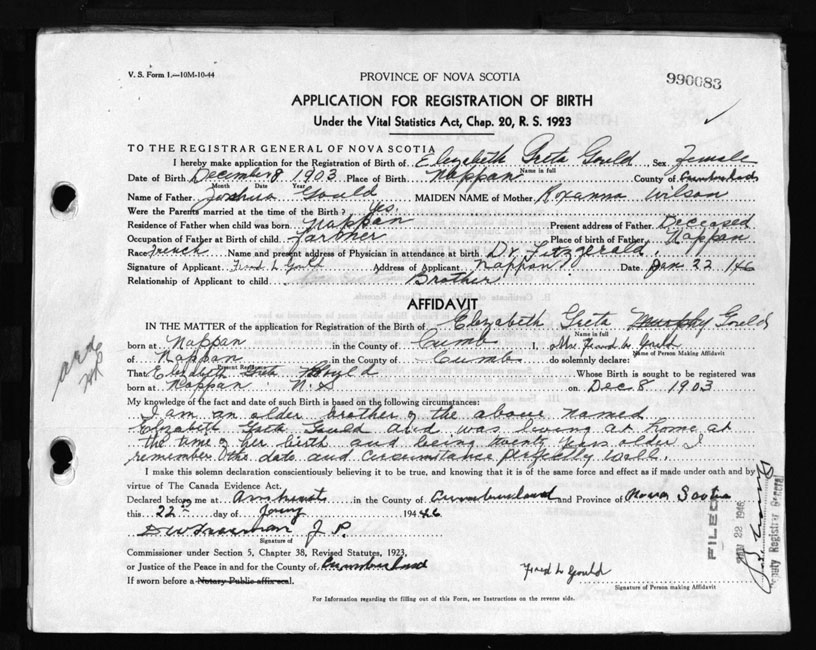 V. S. Form 1.—10M-10-44
PROVINCE OF NOVA SCOTIA
990083
APPLICATION FOR REGISTRATION OF BIRTH
Under the Vital Statistics Act, Chap. 20, R. S. 1923
TO THE REGISTRAR GENERAL OF NOVA SCOTIA
I hereby make application for the Registration of Birth of Elizabeth Greta Gould, Sex Female
Name in full
Date of Birth December 8 1903 Place of Birth Nappan County of Cumberland
Month Date Year
Name of Father Joshua Gould MAIDEN NAME of Mother Roxanna Wilson
Were the Parents married at the time of the Birth? Yes.
Residence of Father when child was born. Nappan Present address of Father Deceased
Occupation of Father at Birth of child. Farmer Place of birth of Father Nappan
Race French Name and present address of Physician in attendance at birth. Dr Fitzgerald.
Signature of Applicant. Fred L Gould Address of Applicant Nappan Date Jan 22 / 46
Relationship of Applicant to child Brother
AFFIDAVIT
IN THE MATTER of the application for Registration of the Birth of Elizabeth Greta Murphy Gould
Name in Full
born at Nappan in the County of Cumb I, Fred L. Gould
Name of Person Making Affidavit
of Nappan in the County of Cumb do solemnly declare:
Present Residence
That Elizabeth Greta Gould Whose Birth is sought to be registered was
born at Nappan N.S on Dec 8 1903
My knowledge of the fact and date of such Birth is based on the following circumstances:
I am an older brother of the above named
Elizabeth Greta Gould and was living at home at
the time of her birth and being twenty years older I
remember the date and circumstance perfectly well.
I make this solemn declaration conscientiously believing it to be true, and knowing that it is of the same force and effect as if made under oath and by
virtue of The Canada Evidence Act.
Declared before me at Amherst in the County of Cumberland and Province of Nova Scotia
this 22nd day of Jany 1946
J. P.
Signature of
Commissioner under Section 5, Chapter 38, Revised Statutes, 1923,
or Justice of the Peace in and for the County of Cumberland
Fred L Gould
If sworn before a Notary Public affix seal.
Signature of Person making Affidavit
For Information regarding the filling out of this Form, see Instructions on the reverse side.
FILED
JAN 22 1946
Deputy Registrar General